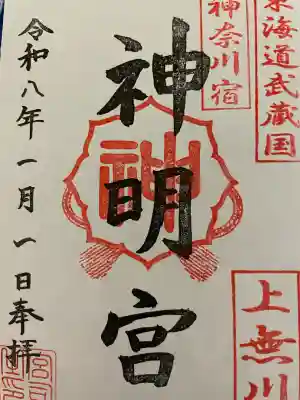 東海道武蔵国
神奈川宿
神明宮
上無川
令和八年一月一日奉拝